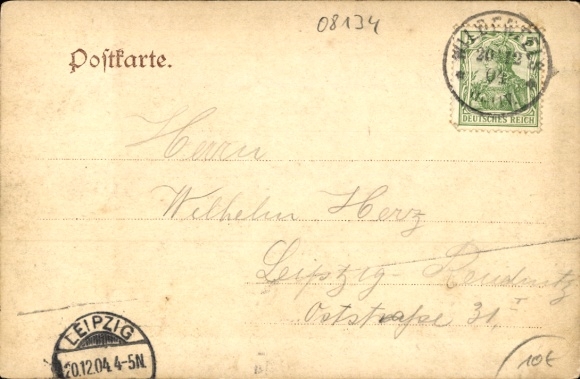 08134
Postkarte.
20 12
04
DEUTSCHES REICH
Herrn
Wilhelm Herz
Leipzig-Reudnitz
Oststraße 31, I
LEIPZIG
20.12.04. 4-5N.
10€